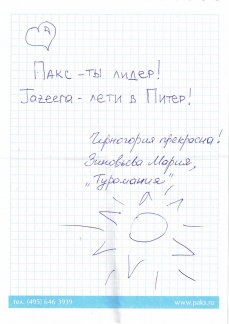 Пакс - ты лидер!
Jazeera - лети в Питер!
Черногория прекрасна!
Зиновьева Мария,
"Туромания"
тел. (495) 646 3939
www.paks.ru